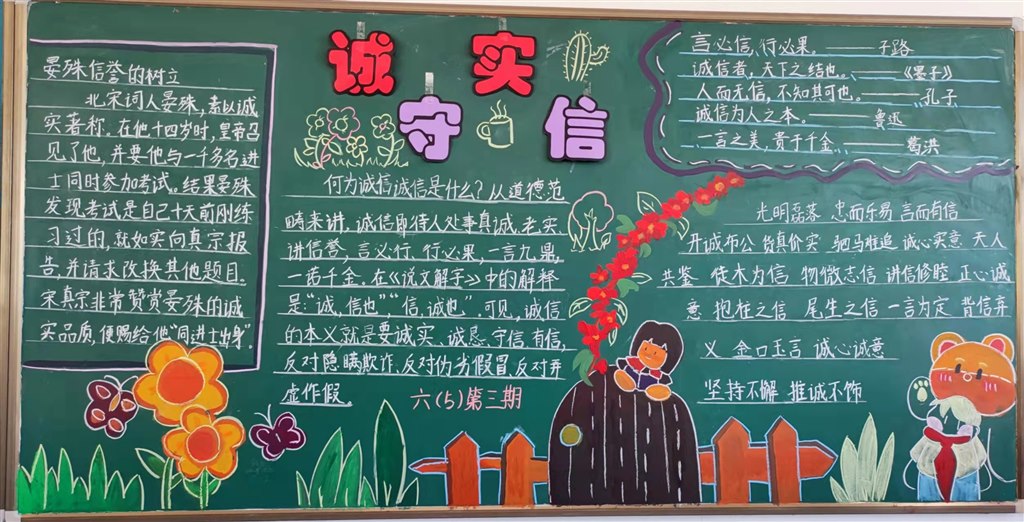 诚实
守信
晏殊信誉的树立
北宋词人晏殊,素以诚
实著称。在他十四岁时,皇帝召
见了他,并要他与一千多名进
士同时参加考试。结果晏殊
发现考试是自己十天前刚练
习过的,就如实向真宗报
告,并请求改换其他题目。
宋真宗非常赞赏晏殊的诚
实品质,便赐给他“同进士出身”。
何为诚信诚信是什么?从道德范
畴来讲,诚信即待人处事真诚、老实、
讲信誉,言必行、行必果,一言九鼎,
一诺千金。在《说文解字》中的解释
是:“诚,信也”,“信,诚也”。可见,诚信
的本义就是要诚实、诚恳、守信、有信,
反对隐瞒欺诈、反对伪劣假冒、反对弄
虚作假。
六(5)第三期
言必信,行必果。——子路
诚信者,天下之结也。——《晏子》
人而无信,不知其可也。——孔子
诚信为人之本。——鲁迅
一言之美,贵于千金。——葛洪
光明磊落 忠而乐易 言而有信
开诚布公 货真价实 驷马难追 诚心实意 天人
共鉴 徙木为信 物微志信 讲信修睦 正心诚
意 抱柱之信 尾生之信 一言为定 背信弃
义 金口玉言 诚心诚意
坚持不懈 推诚不饰